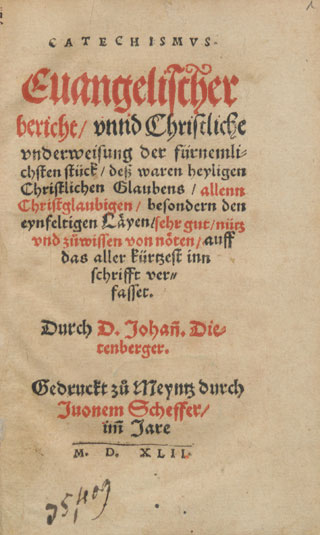 CATECHISMVS.
Euangelischer
bericht/ vnnd Christliche
vnderweisung der fürnemli-
chsten stück/ deß waren heyligen
Christlichen Glaubens/ allenn
Christglaubigen/ besondern den
eynfeltigen Läyen/ sehr gut/ nütz
vnd zůwissen von nöten/ auff
das aller kürtzest inn
schrifft ver-
fasset.
Durch D. Johañ. Die-
tenberger.
Gedruckt zů Meyntz durch
Juonem Scheffer/
im̃ Jare
M. D. XLII.
35,409